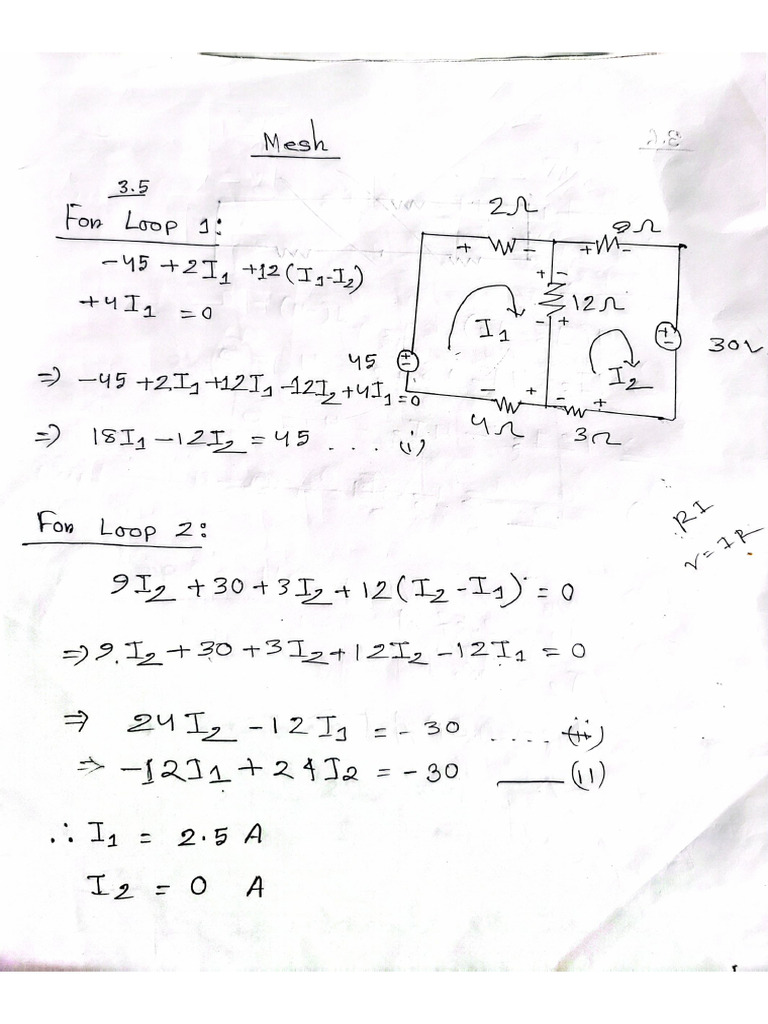 Mesh
3.5
For Loop 1:
-45 + 2I₁ + 12(I₁-I₂)
+4I₁ = 0
⇒ -45 + 2I₁ + 12I₁ - 12I₂ + 4I₁ = 0
⇒ 18I₁ - 12I₂ = 45 .... (i)
2Ω
9Ω
+ -
+ -
+ -
12Ω
- +
I₁
45
+ -
I₂
+ -
30v
- +
- +
4Ω
3Ω
RI
v=IR
For Loop 2:
9I₂ + 30 + 3I₂ + 12(I₂ - I₁) = 0
⇒ 9.I₂ + 30 + 3I₂ + 12I₂ - 12I₁ = 0
⇒ 24I₂ - 12I₁ = - 30 .... (ii)
⇒ -12I1 + 24I2 = -30 —— (ii)
∴ I₁ = 2.5 A
I₂ = 0 A